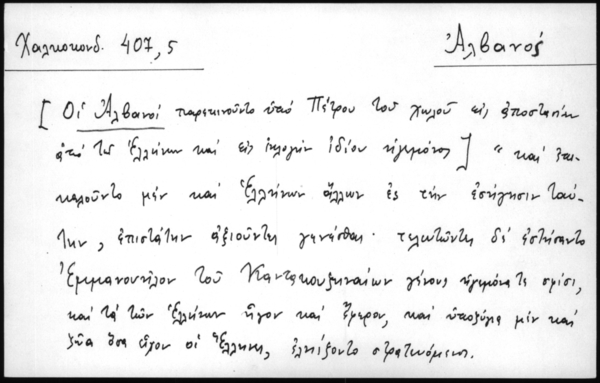 Χαλκοκονδ. 407,5
Ἀλβανός
[ Οἱ Ἀλβανοί παρεκινοῦντο ὑπό Πέτρου τοῦ χωλοῦ εἰς ἀποστασίαν
ἀπό τῶν Ἑλλήνων καί εἰς ἐκλογήν ἰδίου ἡγεμόνος ] " καί ἐπε-
καλοῦντο μέν καί Ἑλλήνων ἄλλων ἐς τήν ἐσήγησιν ταύ-
την, ἐπιστάτην ἀξιοῦντες γενέσθαι· τελευτῶντες δέ ἐστήσαντο
Ἐμμανουῆλον τοῦ Καντακουζηναίων γένους ἡγεμόνα τε σφίσι,
καί τά τῶν Ἑλλήνων ἦγον καί ἔφερον, καί ὑποζύγια μέν καί
ζῷα ὅσα εἶχον οἱ Ἕλληνες, ἐληΐζοντο στρατευόμενοι.